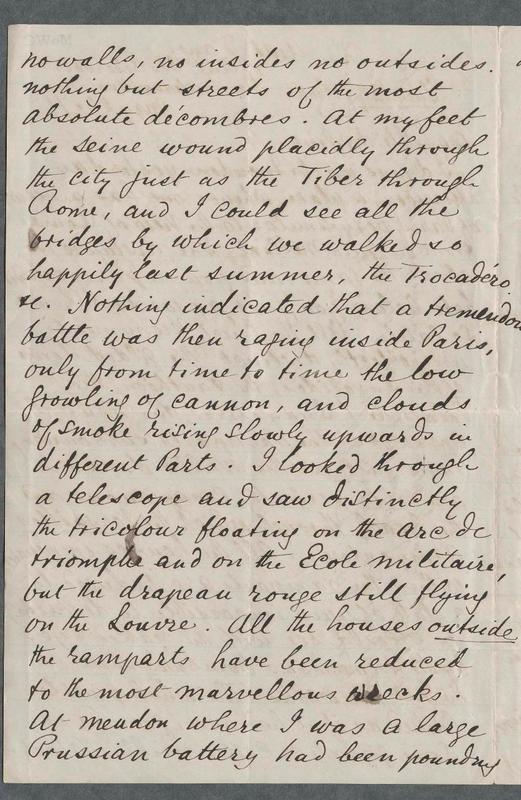 no walls, no insides no outsides.
nothing but streets of the most
absolute décombres. At my feet
the Seine wound placidly through
the city just as the Tiber through
Rome, and I could see all the
bridges by which we walked so
happily last summer, the Trocadéro
&c. Nothing indicated that a tremendou
battle was then raging inside Paris,
only from time to time the low
growling of cannon, and clouds
of smoke rising slowly upwards in
different Parts. I looked through
a telescope and saw distinctly
the tricolour floating on the Arc de
triomphe and on the Ecole militaire,
but the drapeau rouge still flying
on the Louvre. All the houses outside
the ramparts have been reduced
to the most marvellous wrecks.
At meudon where I was a large
Prussian battery had been pounding